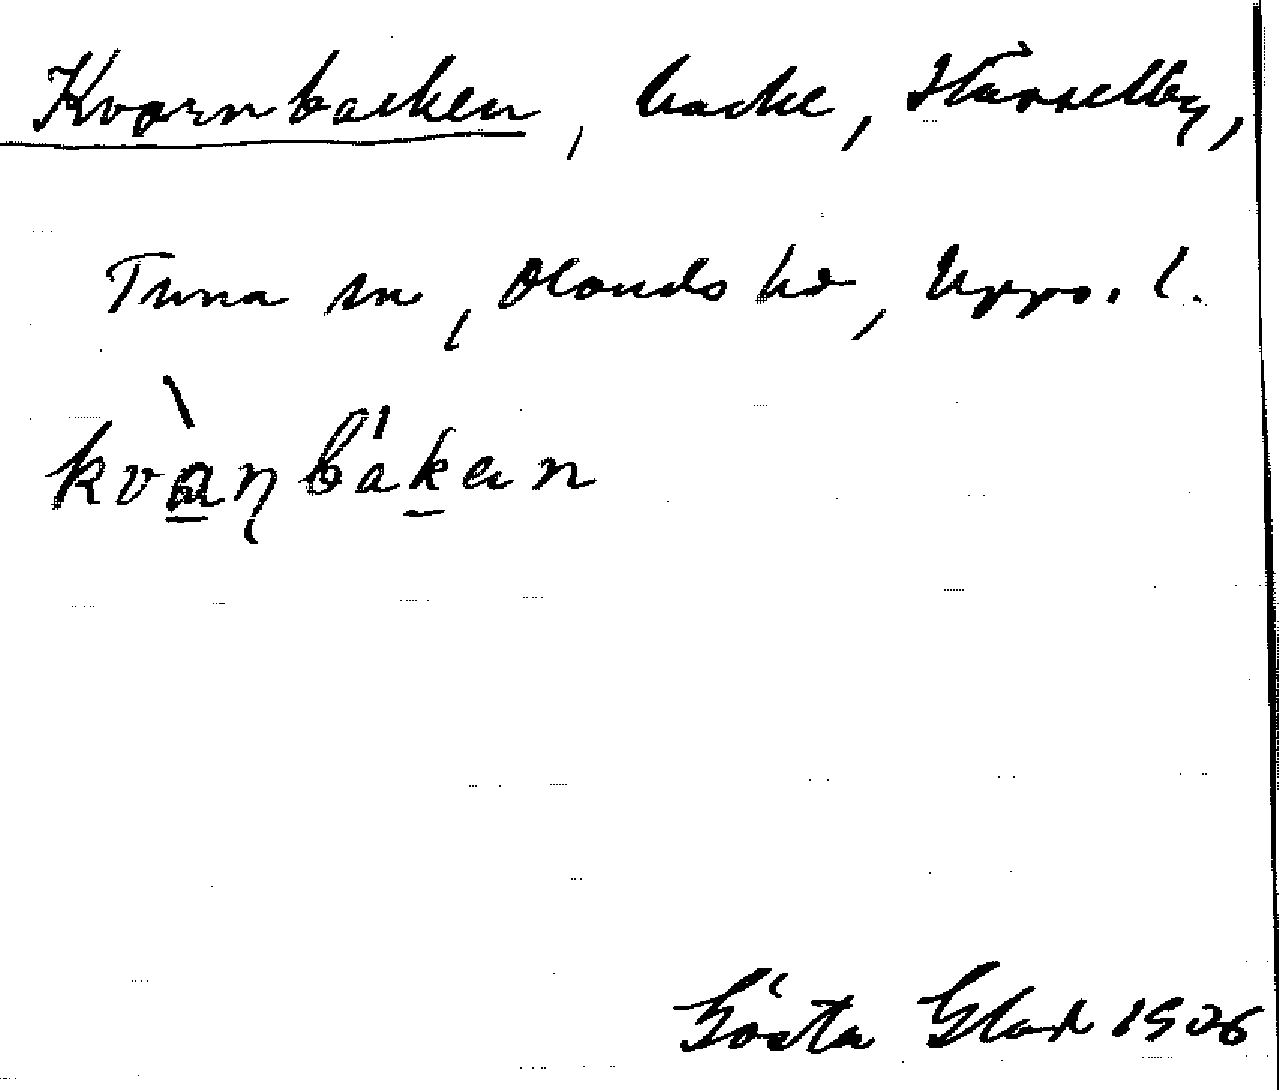 Kvarnbacken, backe, Hässelby,
Tuna sn, Olands hd, Upps. l.
kvànbákan
Gösta Glad 1926